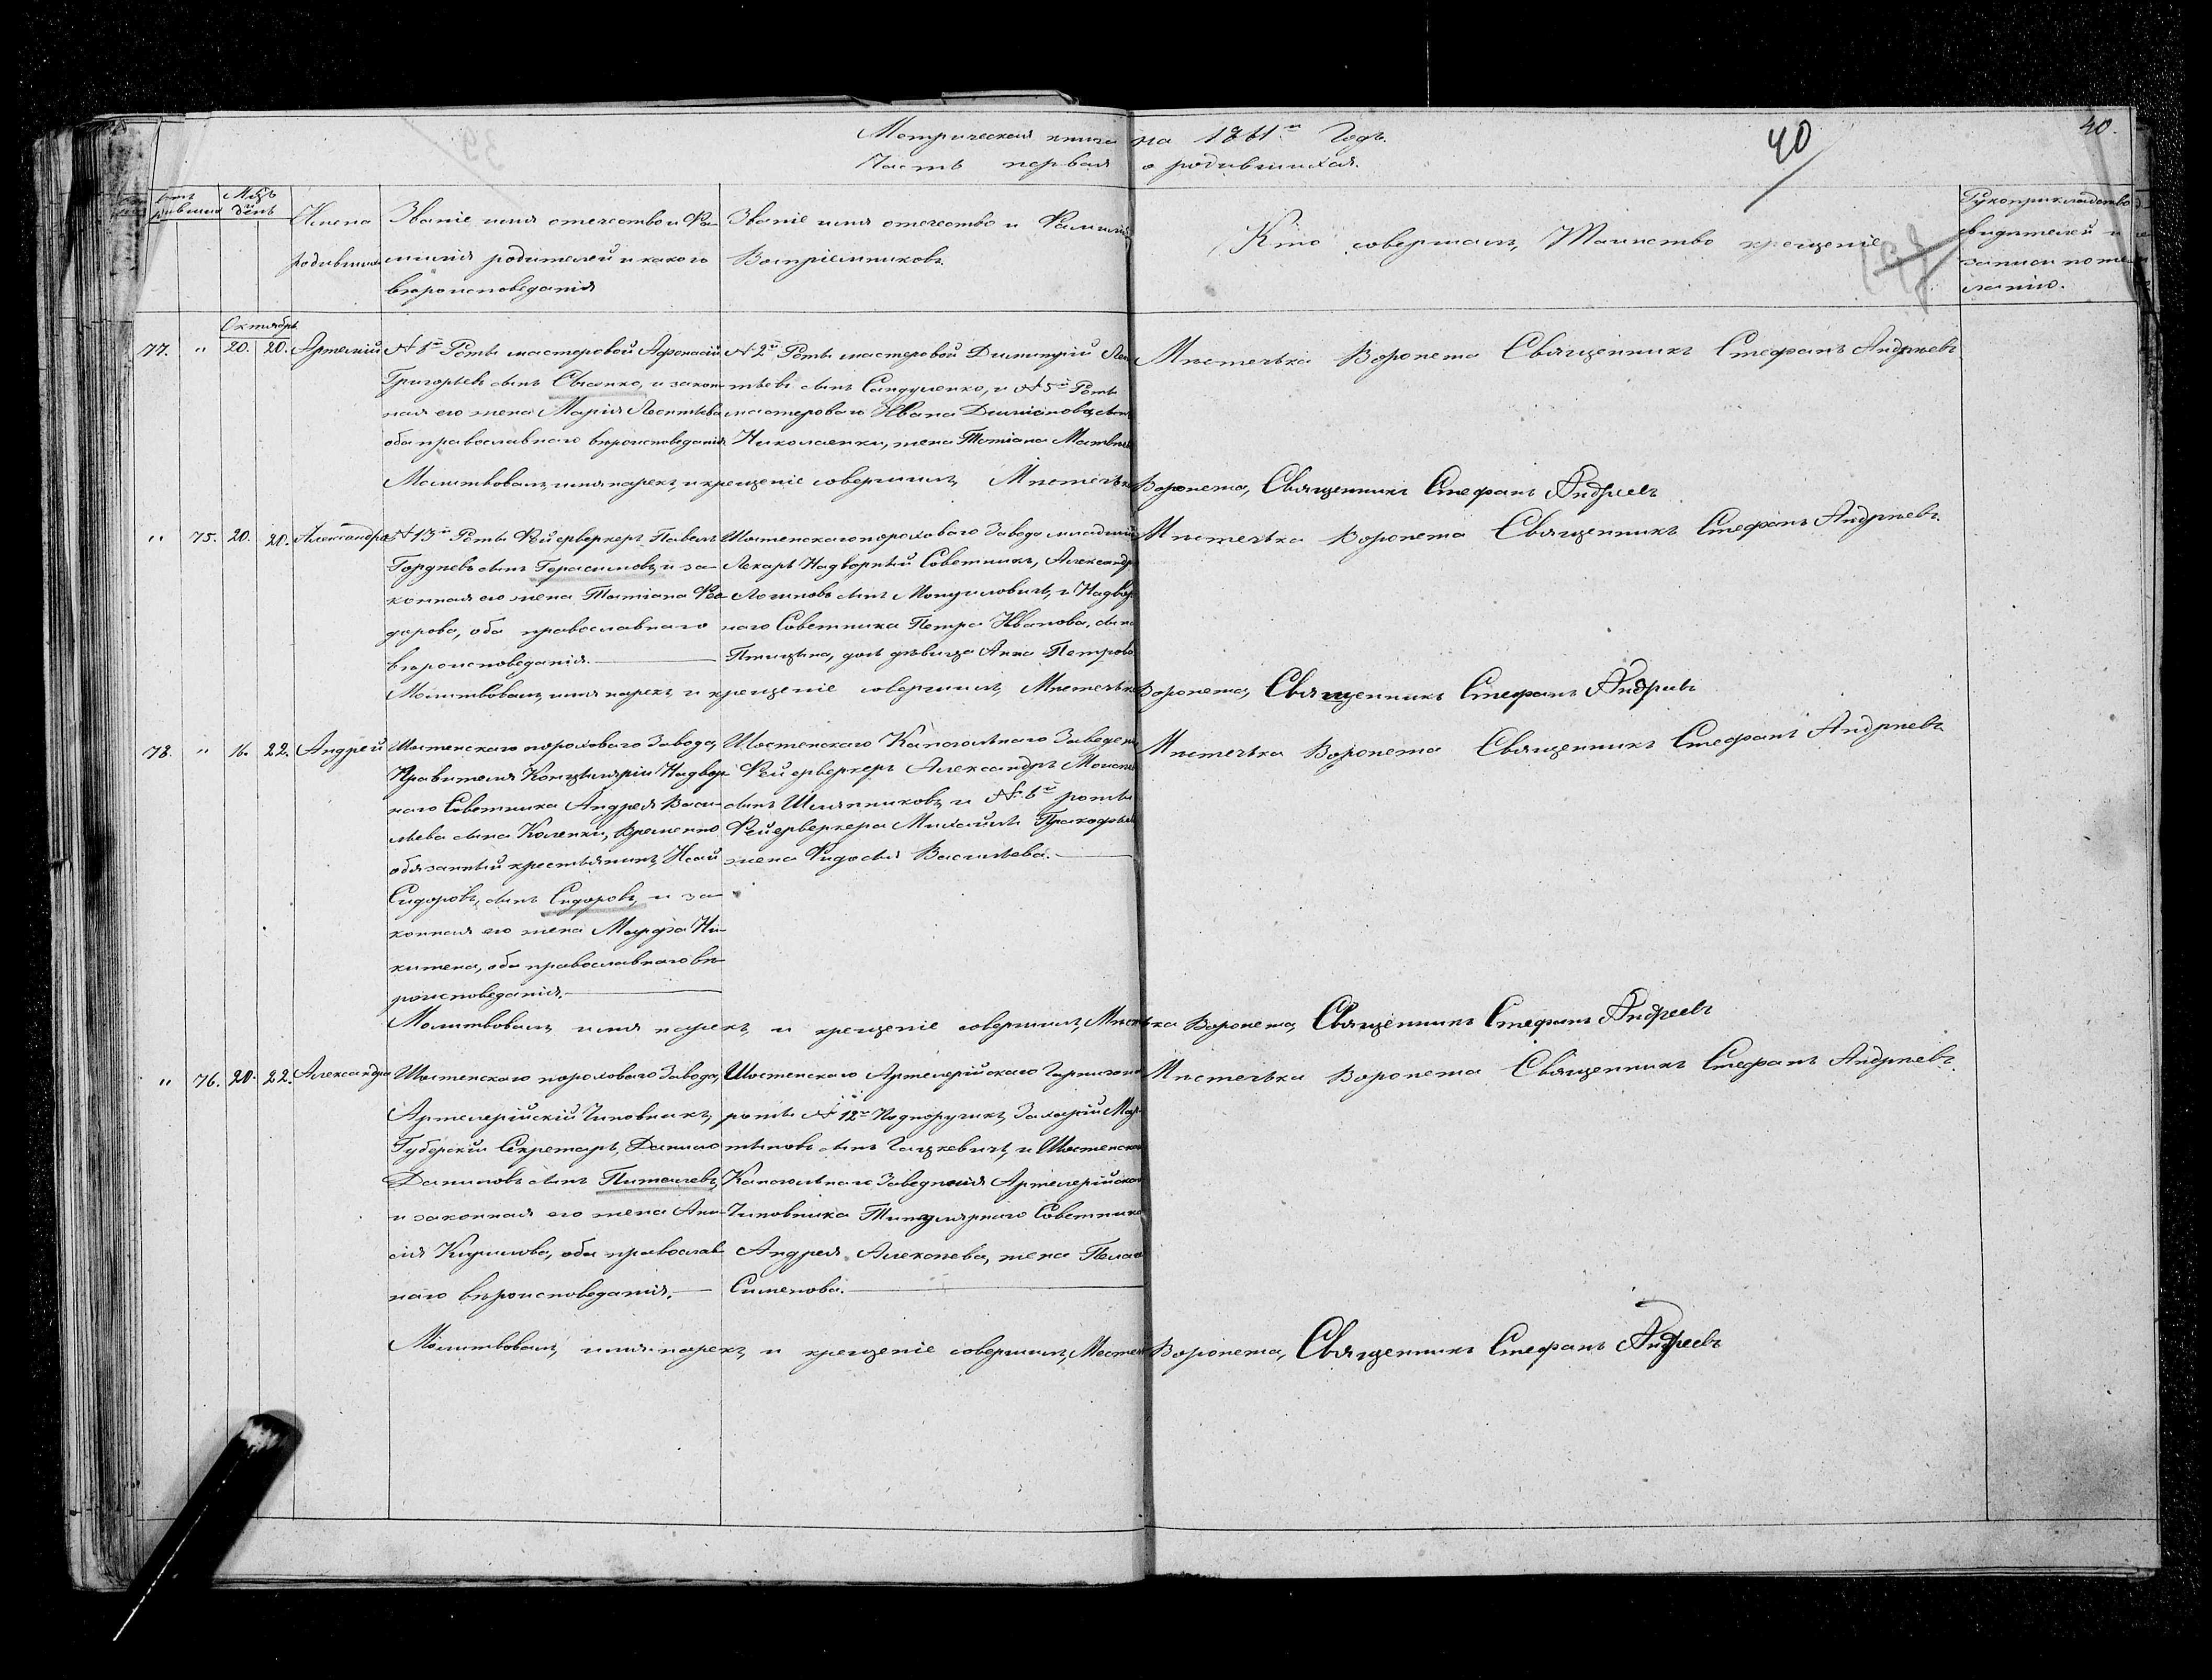 Метрическая книга на 1861й Годъ.
Часть первая о родившихся.
40
40.
Мѣц и день
Имена родившихся
Званіе имя отечество и Фамилія родителей и какого вѣроисповеданія
Званіе имя отечество и Фамилія Воспріемниковъ.
Кто совершалъ Таинство крещеніе
Рукоприкладство свидѣтелей и записи по желанію.
Октябрь
77. " 20. 20. Артемій
№ 6й Роты мастеровой Афонасій
Григорьевъ сынъ и закон-
ная его жена Марія Леонтьева
оба православнаго вѣроисповеданія
№ 2й Роты мастеровой Димитрій
сынъ Сандуленко, и № 5й Роты
мастероваго Ивана Диміонова сына
Николаенки, жена Татіана Матвѣева
Мѣстечка Воронежа Священникъ Стефанъ Андріевъ
Молитвовалъ, имя нарекъ, и крещеніе совершилъ, Мѣстечка Воронежа, Священникъ Стефанъ Андреевъ
" 75. 20. 20. Александра
№ 13й Роты Фейерверкеръ Павелъ
Гордѣевъ сынъ Герасимовъ, и за-
конная его жена Татіана Фео-
дорова, оба православнаго
вѣроисповеданія.
Шостенскаго пороховаго Завода младшій
Лекарь Надворный Советникъ, Александръ
Логиновъ сынъ и Надвор-
наго Советника Петра Иванова, сына
Птицына, дочь дѣвица Анна Петрова
Мѣстечка Воронежа Священникъ Стефанъ Андріевъ.
Молитвовалъ, имя нарекъ, и крещеніе совершилъ, Мѣстечка Воронежа, Священникъ Стефанъ Андреевъ
78. " 16. 22. Андрей
Шостенскаго пороховаго Завода,
Правителя Канцеляріи Надвор-
наго Советника Андрея Васи-
льева сына Временно
обязанный крестьянинъ, Исай
Сидоровъ, сынъ Сидоровъ, и за-
конная его жена Марфа Ни-
китена, оба православнаго вѣ-
роисповеданія.
Шостенскаго Капсюльнаго Заведенія
Фейерверкеръ Александръ
сынъ Шляпниковъ, и № 6й роты
Фейерверкера Михаила Пракофьева
жена Фидосья Васильева.
Мѣстечка Воронежа Священникъ Стефанъ Андріевъ
Молитвовалъ, имя нарекъ, и крещеніе совершилъ, Мѣстечка Воронежа, Священникъ Стефанъ Андреевъ
" 76. 20. 22. Александра
Шостенскаго пороховаго Завода,
Артелерійскій Чиновникъ,
Губерскій Секретарь, Данило
Даниловъ сынъ Питолевъ,
и законная его жена Ана-
сія Кирилова, оба православ-
наго вѣроисповеданія.
Шостенскаго Артелерійскаго Гарнизона
роты № 12й Подпоручикъ, Захарій Мар-
тыновъ сынъ и Шостенскаго
Капсюльнаго Заведенія Артелерійскаго
Чиновника Титулярнаго Советника
Андрея Алексѣева, жена
Сименова.
Мѣстечка Воронежа Священникъ Стефанъ Андріевъ.
Молитвовалъ, имя нарекъ, и крещеніе совершилъ, Местечка Воронежа, Священникъ Стефанъ Андреевъ